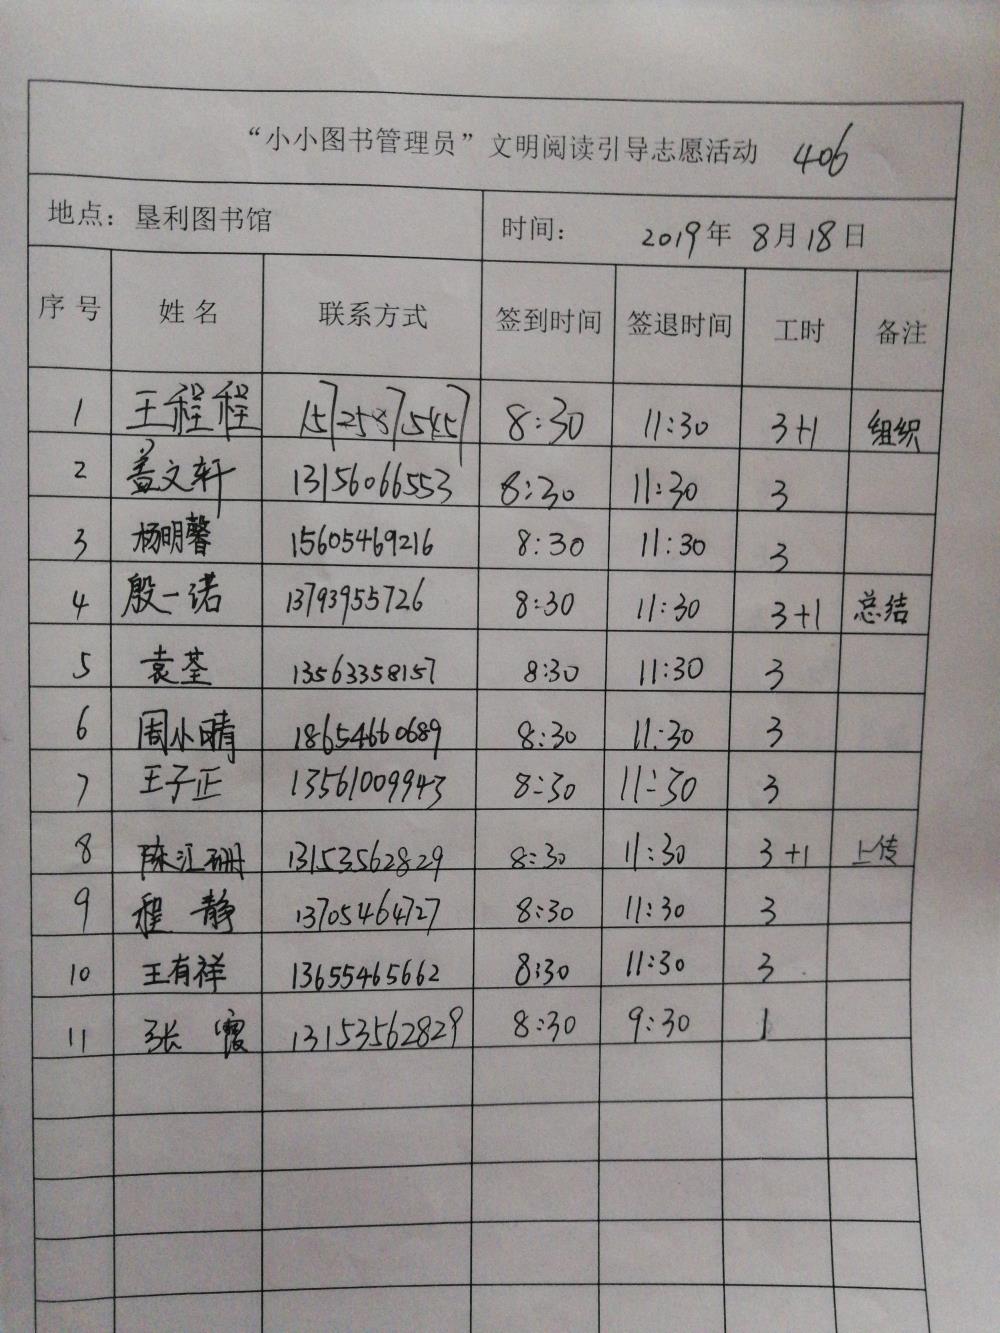 “小小图书管理员”文明阅读引导志愿活动 406
地点：垦利图书馆 时间： 2019年 8月18日
序号 姓名 联系方式 签到时间 签退时间 工时 备注
1 王程程 15725871545 8:30 11:30 3+1 组织
2 盖文轩 13156066553 8:30 11:30 3
3 杨明馨 15605469216 8:30 11:30 3
4 殷一诺 13793955726 8:30 11:30 3+1 总结
5 袁荃 13563358157 8:30 11:30 3
6 周小晴 18654660689 8:30 11:30 3
7 王子正 13561009943 8:30 11:30 3
8 陈江珊 13153562829 8:30 11:30 3+1 上传
9 程静 13705464727 8:30 11:30 3
10 王有祥 13655465662 8:30 11:30 3
11 张霞 13153562829 8:30 9:30 1